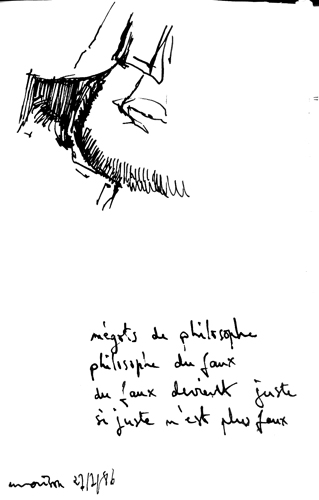 mégots de philosophe
philosophe du faux
du faux devient juste
si juste n'est plus faux
27/7/96